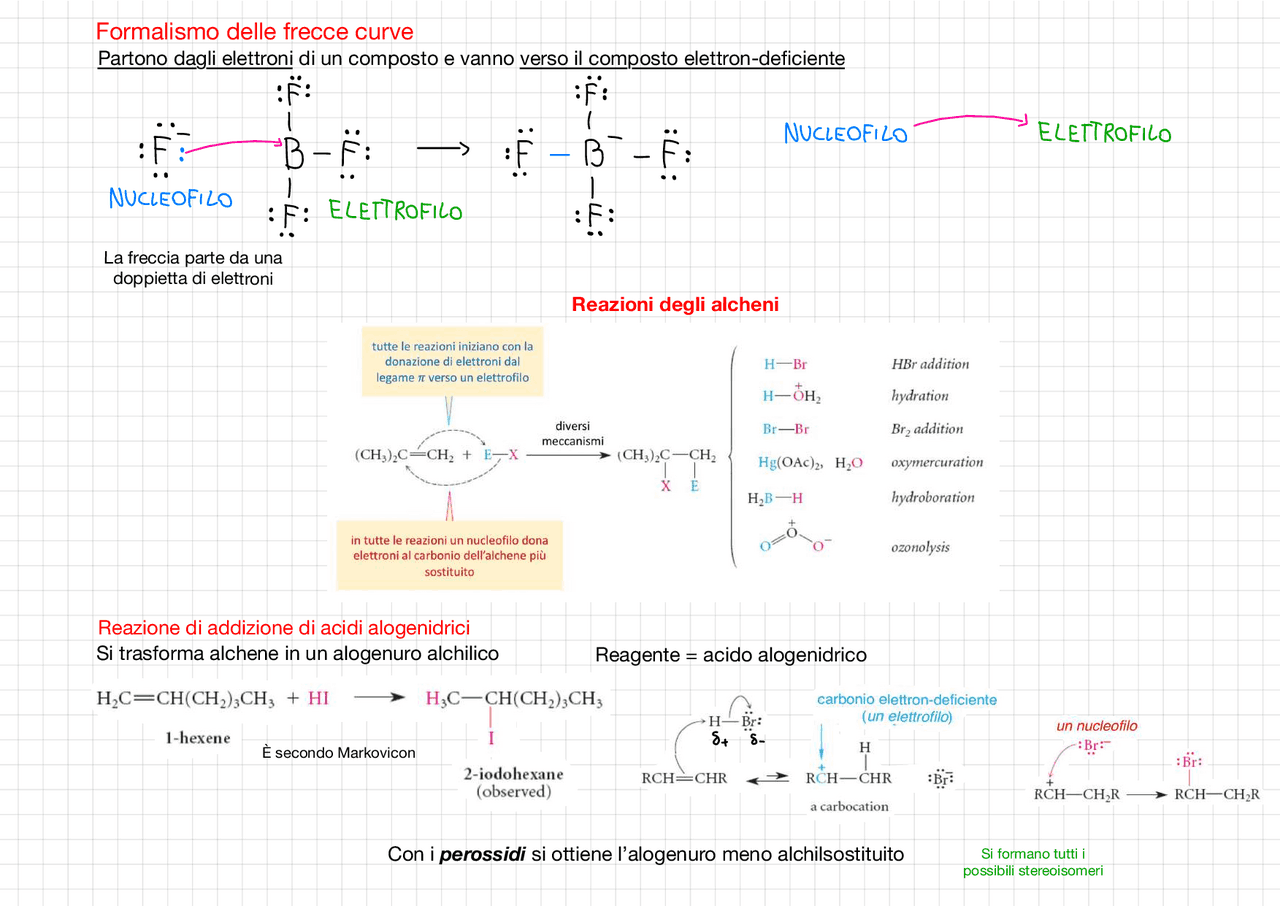 Formalismo delle frecce curve
Partono dagli elettroni di un composto e vanno verso il composto elettron-deficiente
:F:
:F:⁻ B – F: ⟶ :F – B⁻ – F:
:F:
NUCLEOFILO
ELETTROFILO
:F:
:F:
NUCLEOFILO
ELETTROFILO
La freccia parte da una
doppietta di elettroni
Reazioni degli alcheni
tutte le reazioni iniziano con la
donazione di elettroni dal
legame π verso un elettrofilo
(CH₃)₂C=CH₂ + E—X
diversi
meccanismi
(CH₃)₂C—CH₂
X E
in tutte le reazioni un nucleofilo dona
elettroni al carbonio dell'alchene più
sostituito
H—Br HBr addition
H—O⁺H₂ hydration
Br—Br Br₂ addition
Hg(OAc)₂, H₂O oxymercuration
H₂B—H hydroboration
O=O⁺–O⁻ ozonolysis
Reazione di addizione di acidi alogenidrici
Si trasforma alchene in un alogenuro alchilico
Reagente = acido alogenidrico
H₂C=CH(CH₂)₃CH₃ + HI ⟶ H₃C—CH(CH₂)₃CH₃
I
1-hexene
È secondo Markovicon
2-iodohexane
(observed)
H—Br:
δ+ δ-
RCH=CHR
carbonio elettron-deficiente
(un elettrofilo)
H
RCH⁺—CHR :Br:⁻
a carbocation
un nucleofilo
:Br:⁻
RCH⁺—CH₂R ⟶ RCH—CH₂R
:Br:
Con i perossidi si ottiene l'alogenuro meno alchilsostituito
Si formano tutti i
possibili stereoisomeri